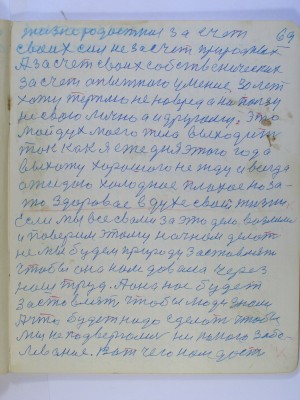 жизнерадостный за счет 69
своих сил не за счет природных
А за счет своих собственических
за счет опытного умение, 30 лет
хожу терплю не повреда на пользу
не свою лично а другому. Это
мой дух моего тела выходит
так как я ежедня этого года
выхожу хорошого не жду а всегда
ожидаю холодное плохое но за-
то здоровае в духе свой жизни.
Если мы все свами за это дело возмем
и поверим этому начном делать
не мы будем природу заставлять
чтобы она нам довала через
наш труд. А она нас будет
заставлять чтобы люди знали
А что будет надо сделать чтобы
мы не подвергали никакого забо-
левание. Вот чего нам даст